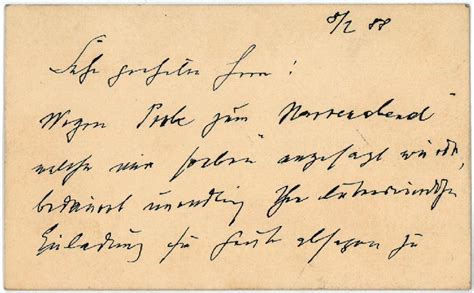 8/2 88
Sehr geehrter Herr!
Wegen Probe zum "Narrenabend"
welche mir soeben angesagt wurde,
bedauert unendlich Ihre liebenswürdige
Einladung für heute absagen zu